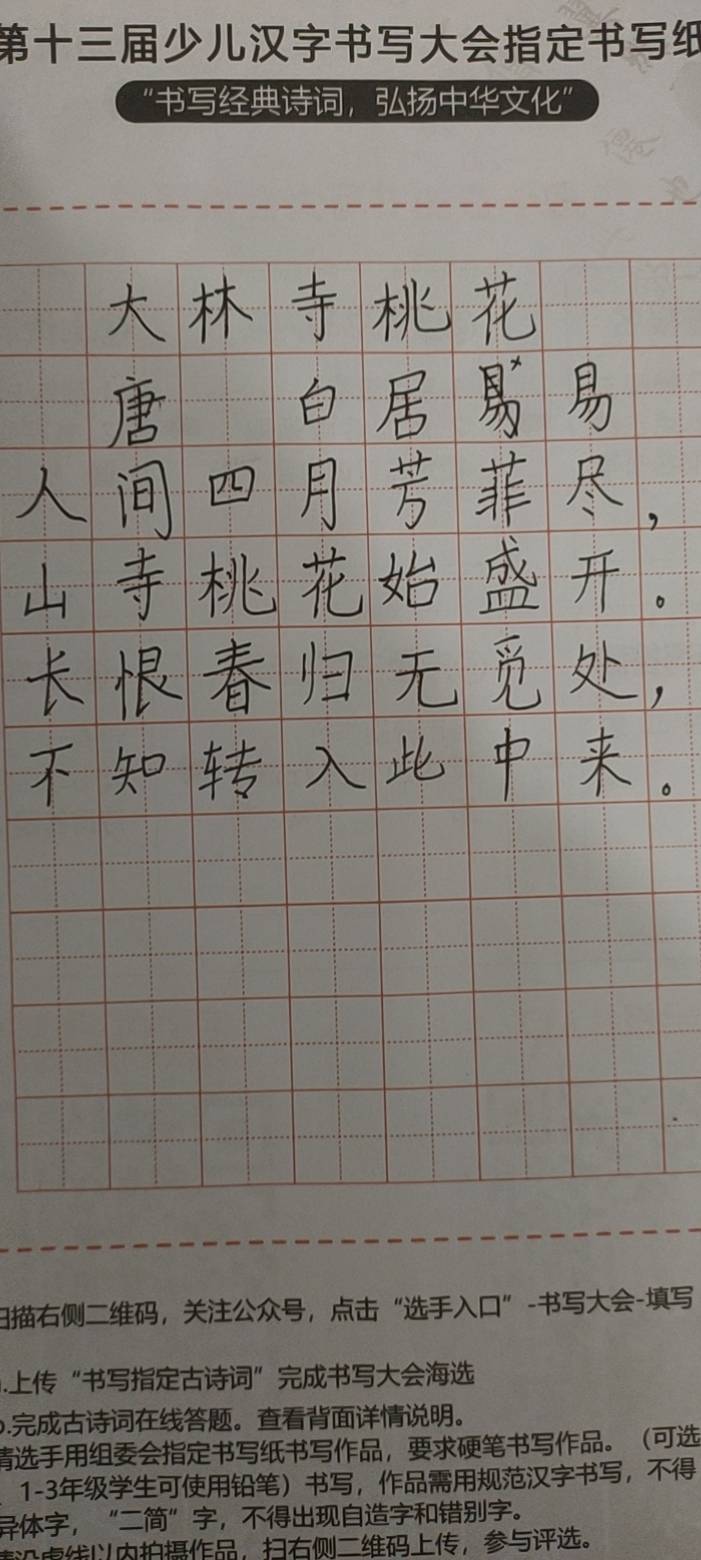 第十三届少儿汉字书写大会指定书写纸
“书写经典诗词，弘扬中华文化”
大林寺桃花
唐 白居易
人间四月芳菲尽，
山寺桃花始盛开。
长恨春归无觅处，
不知转入此中来。
扫描右侧二维码，关注公众号，点击“选手入口”-书写大会-填写
.上传“书写指定古诗词”完成书写大会海选
b.完成古诗词在线答题。查看背面详情说明。
请选手用组委会指定书写纸书写作品，要求硬笔书写作品。（可选
1-3年级学生可使用铅笔）书写，作品需用规范汉字书写，不得
异体字，“二简”字，不得出现自造字和错别字。
请沿虚线以内拍摄作品，扫右侧二维码上传，参与评选。